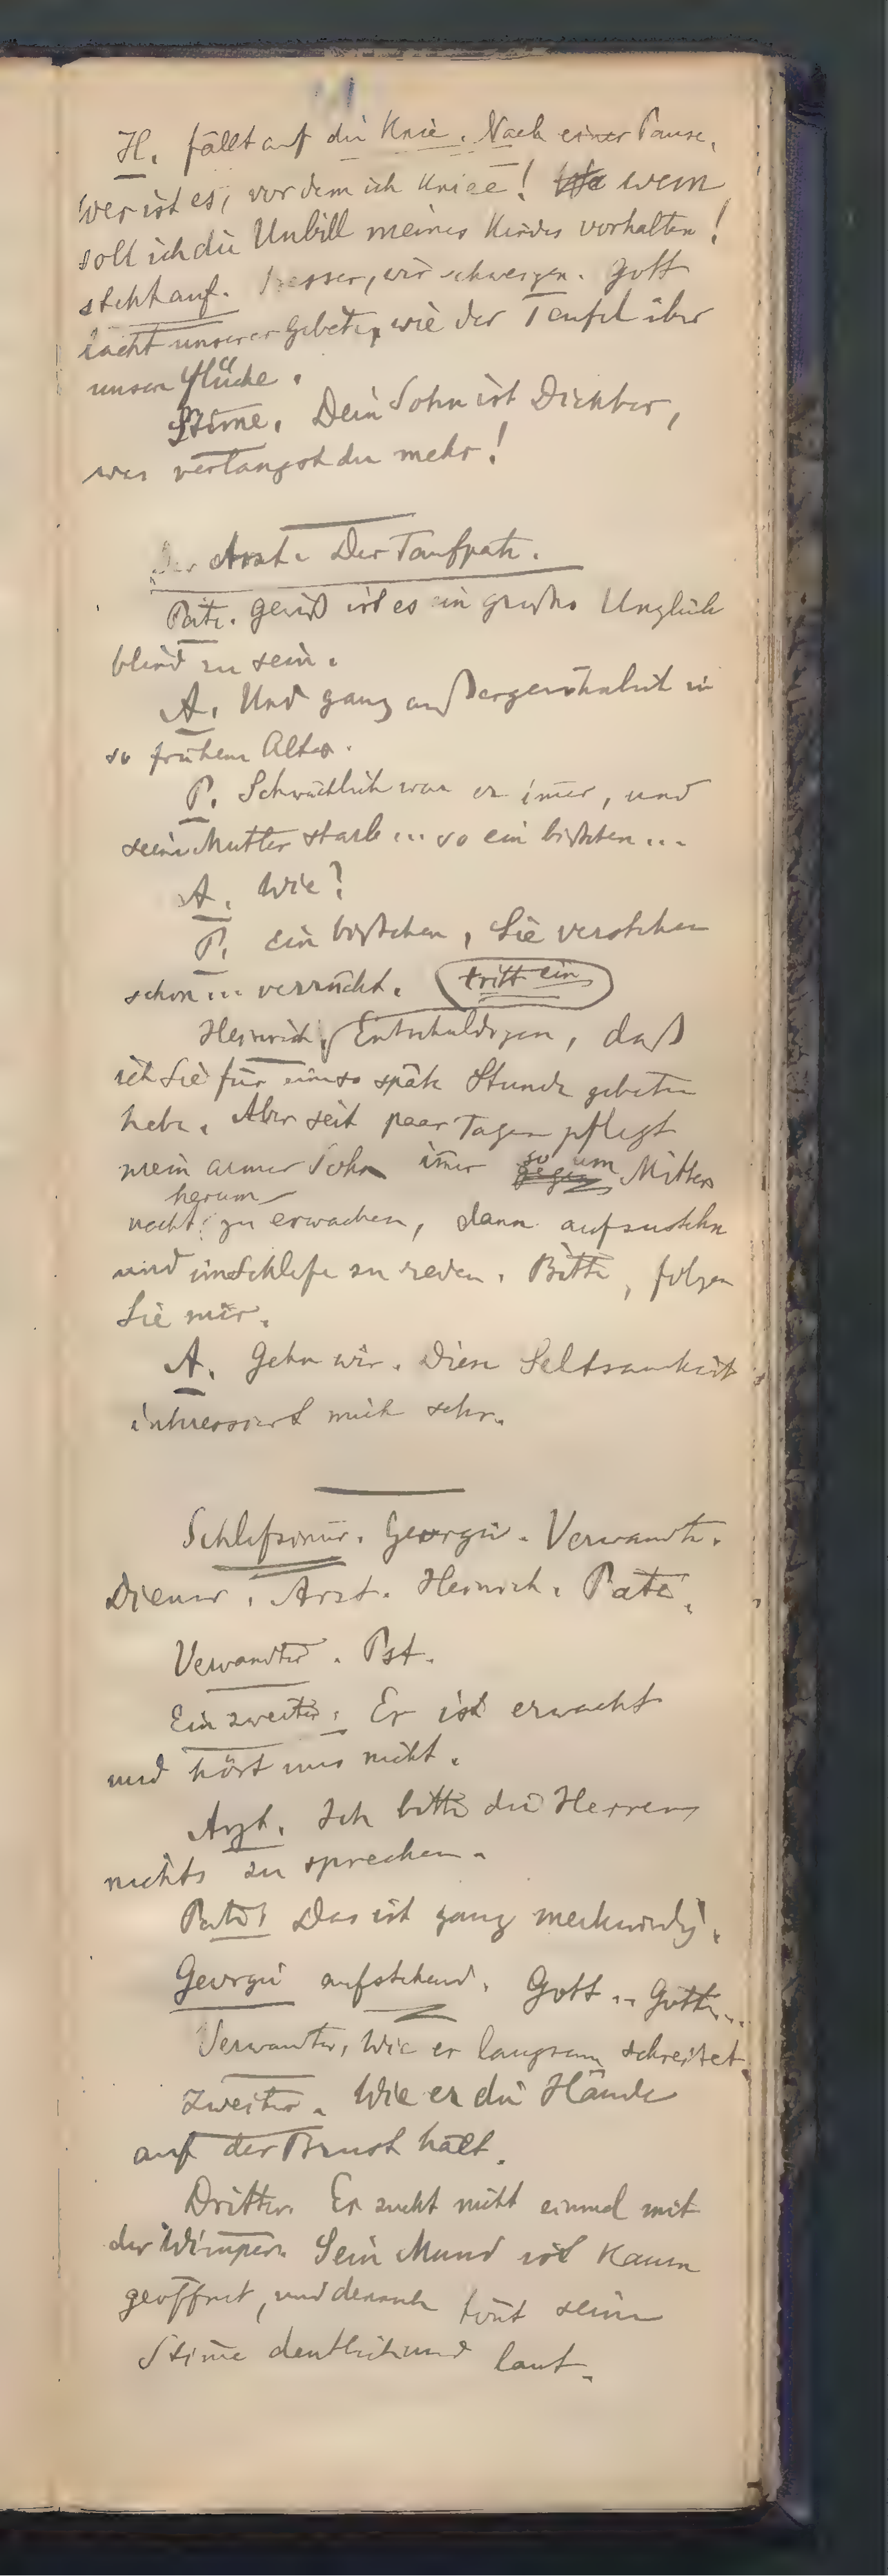 H. fällt auf die Knie. Nach einer Pause.
Wer ist es, vor dem ich kniee! wem
soll ich die Unbill meines Kindes vorhalten!
steht auf. Besser, wir schweigen. Gott
lacht unserer Gebete, wie der Teufel über
unsere Flüche.
Stim̅e. Dein Sohn ist Dichter,
was verlangst du mehr!
Der Arzt. Der Taufpate.
Pate. Gewiß ist es ein großes Unglück
blind zu sein.
A. Und ganz außergewöhnlich in
so frühem Alter.
P. Schwächlich war er im̅er, und
seine Mutter starb ... so ein bißchen ...
A. Wie?
P. ein bißchen, Sie verstehen
schon ... verrückt. tritt ein
Heinrich. Entschuldigen, daß
ich Sie für eine so späte Stunde gebeten
habe. Aber seit paar Tagen pflegt
mein armer Sohn im̅er gegen so um Mitter
nacht herum zu erwachen, dann aufzustehn
und im Schlafe zu reden. Bitte, folgen
Sie mir.
A. Gehn wir. Diese Seltsamkeit
interessiert mich sehr.
Schlafzim̅er. Georgie. Verwandte.
Diener. Arzt. Heinrich. Pate.
Verwandter. Pst.
Ein zweiter. Er ist erwacht
und hört uns nicht.
Arzt. Ich bitte die Herren
nichts zu sprechen.
Pate. Das ist ganz merkwürdig.
Georgie aufstehend. Gott ... Gott ...
Verwandter. Wie er langsam schreitet.
Zweiter. Wie er die Hände
auf der Brust hält.
Dritter. Er zuckt nicht einmal mit
der Wimper. Sein Mund ist kaum
geöffnet, und dennoch tönt seine
Stim̅e deutlich und laut.